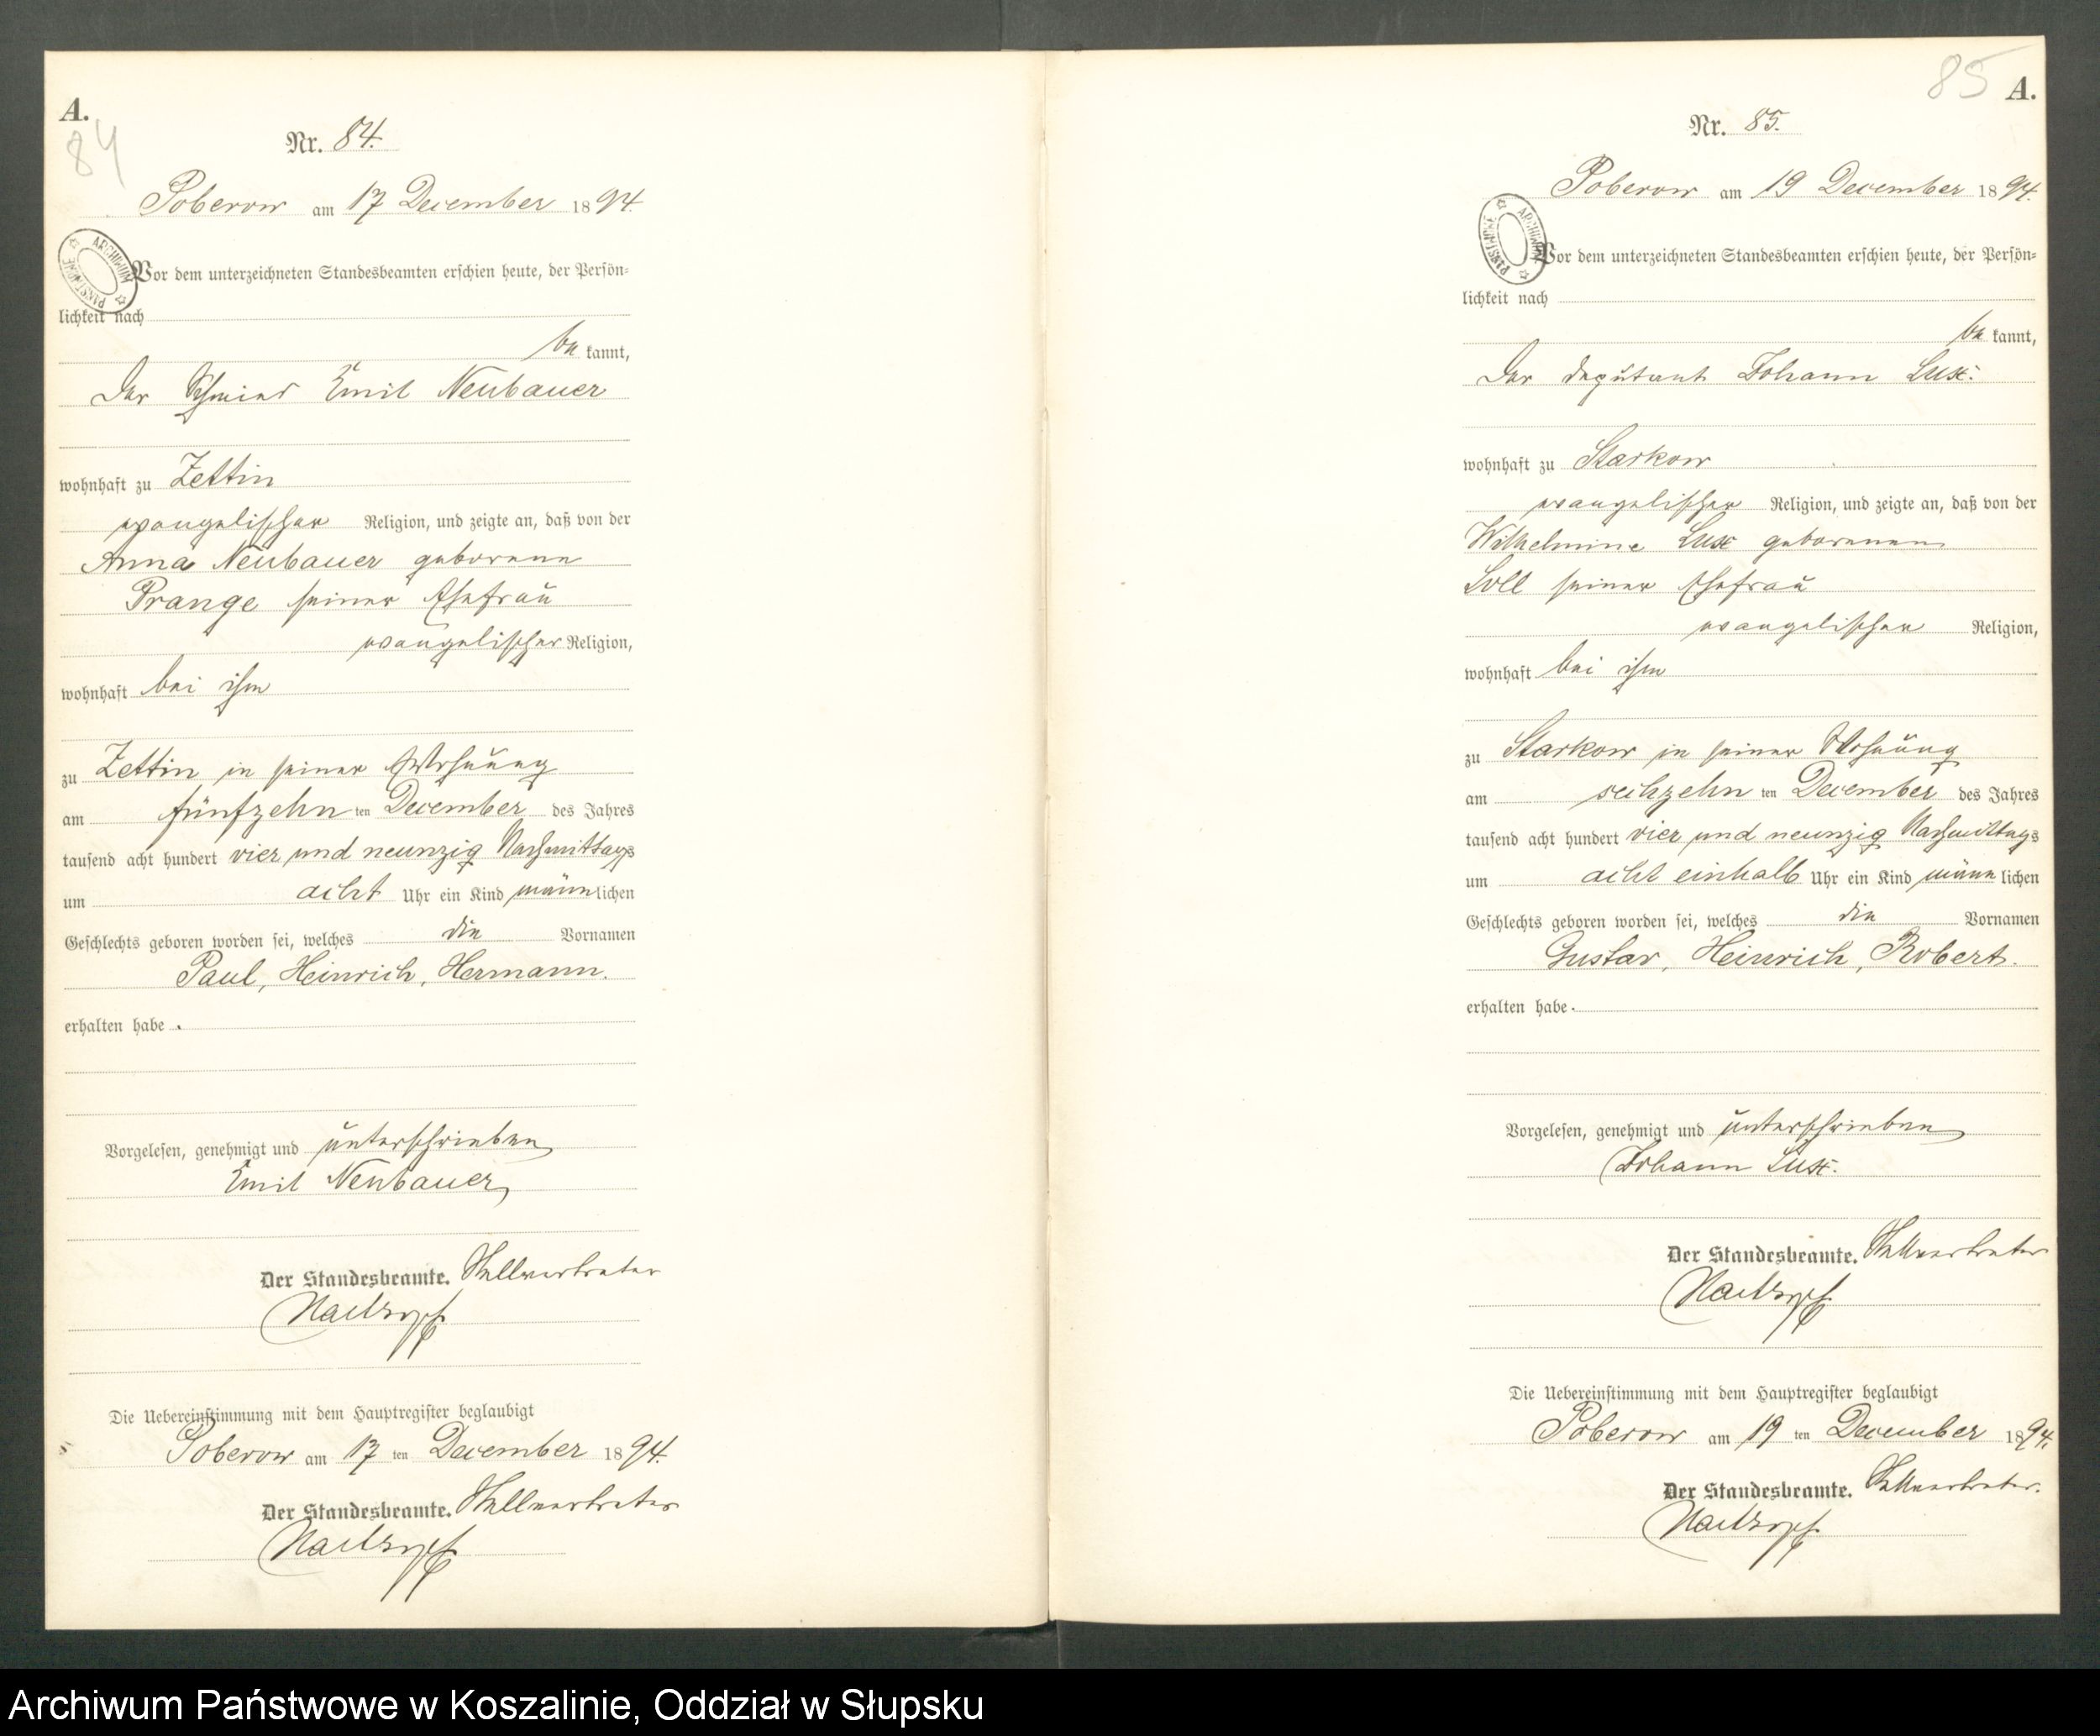 A.
84
Nr. 84.
Poberow am 17 December 1894.
ARCHIWUM PAŃSTWOWE
Vor dem unterzeichneten Standesbeamten erschien heute, der Persön-
lichkeit nach
be kannt,
der Schmied Emil Neubauer
wohnhaft zu Zettin
evangelischer Religion, und zeigte an, daß von der
Anna Neubauer geborene
Prange seiner Ehefrau
evangelischer Religion,
wohnhaft bei ihm
zu Zettin in seiner Wohnung
am fünfzehn ten December des Jahres
tausend acht hundert vier und neunzig Nachmittags
um acht Uhr ein Kind männlichen
Geschlechts geboren worden sei, welches die Vornamen
Paul, Heinrich, Hermann.
erhalten habe.
Vorgelesen, genehmigt und unterschrieben
Emil Neubauer
Der Standesbeamte. Stellvertreter
Die Uebereinstimmung mit dem Hauptregister beglaubigt
Poberow am 17 ten December 1894.
Der Standesbeamte. Stellvertreter
85 A.
Nr. 85.
Poberow am 19 December 1894.
ARCHIWUM PAŃSTWOWE
Vor dem unterzeichneten Standesbeamten erschien heute, der Persön-
lichkeit nach
be kannt,
der Deputant Johann Lux.
wohnhaft zu Starkow
evangelischer Religion, und zeigte an, daß von der
Wilhelmine Lux geborenen
Soll seiner Ehefrau
evangelischen Religion,
wohnhaft bei ihm
zu Starkow in seiner Wohnung
am sechzehn ten December des Jahres
tausend acht hundert vier und neunzig Nachmittags
um acht einhalb Uhr ein Kind männ lichen
Geschlechts geboren worden sei, welches die Vornamen
Gustav, Heinrich, Robert.
erhalten habe.
Vorgelesen, genehmigt und unterschrieben
Johann Lux.
Der Standesbeamte. Stellvertreter
Die Uebereinstimmung mit dem Hauptregister beglaubigt
Poberow am 19 ten December 1894.
Der Standesbeamte. Stellvertreter.
Archiwum Państwowe w Koszalinie, Oddział w Słupsku